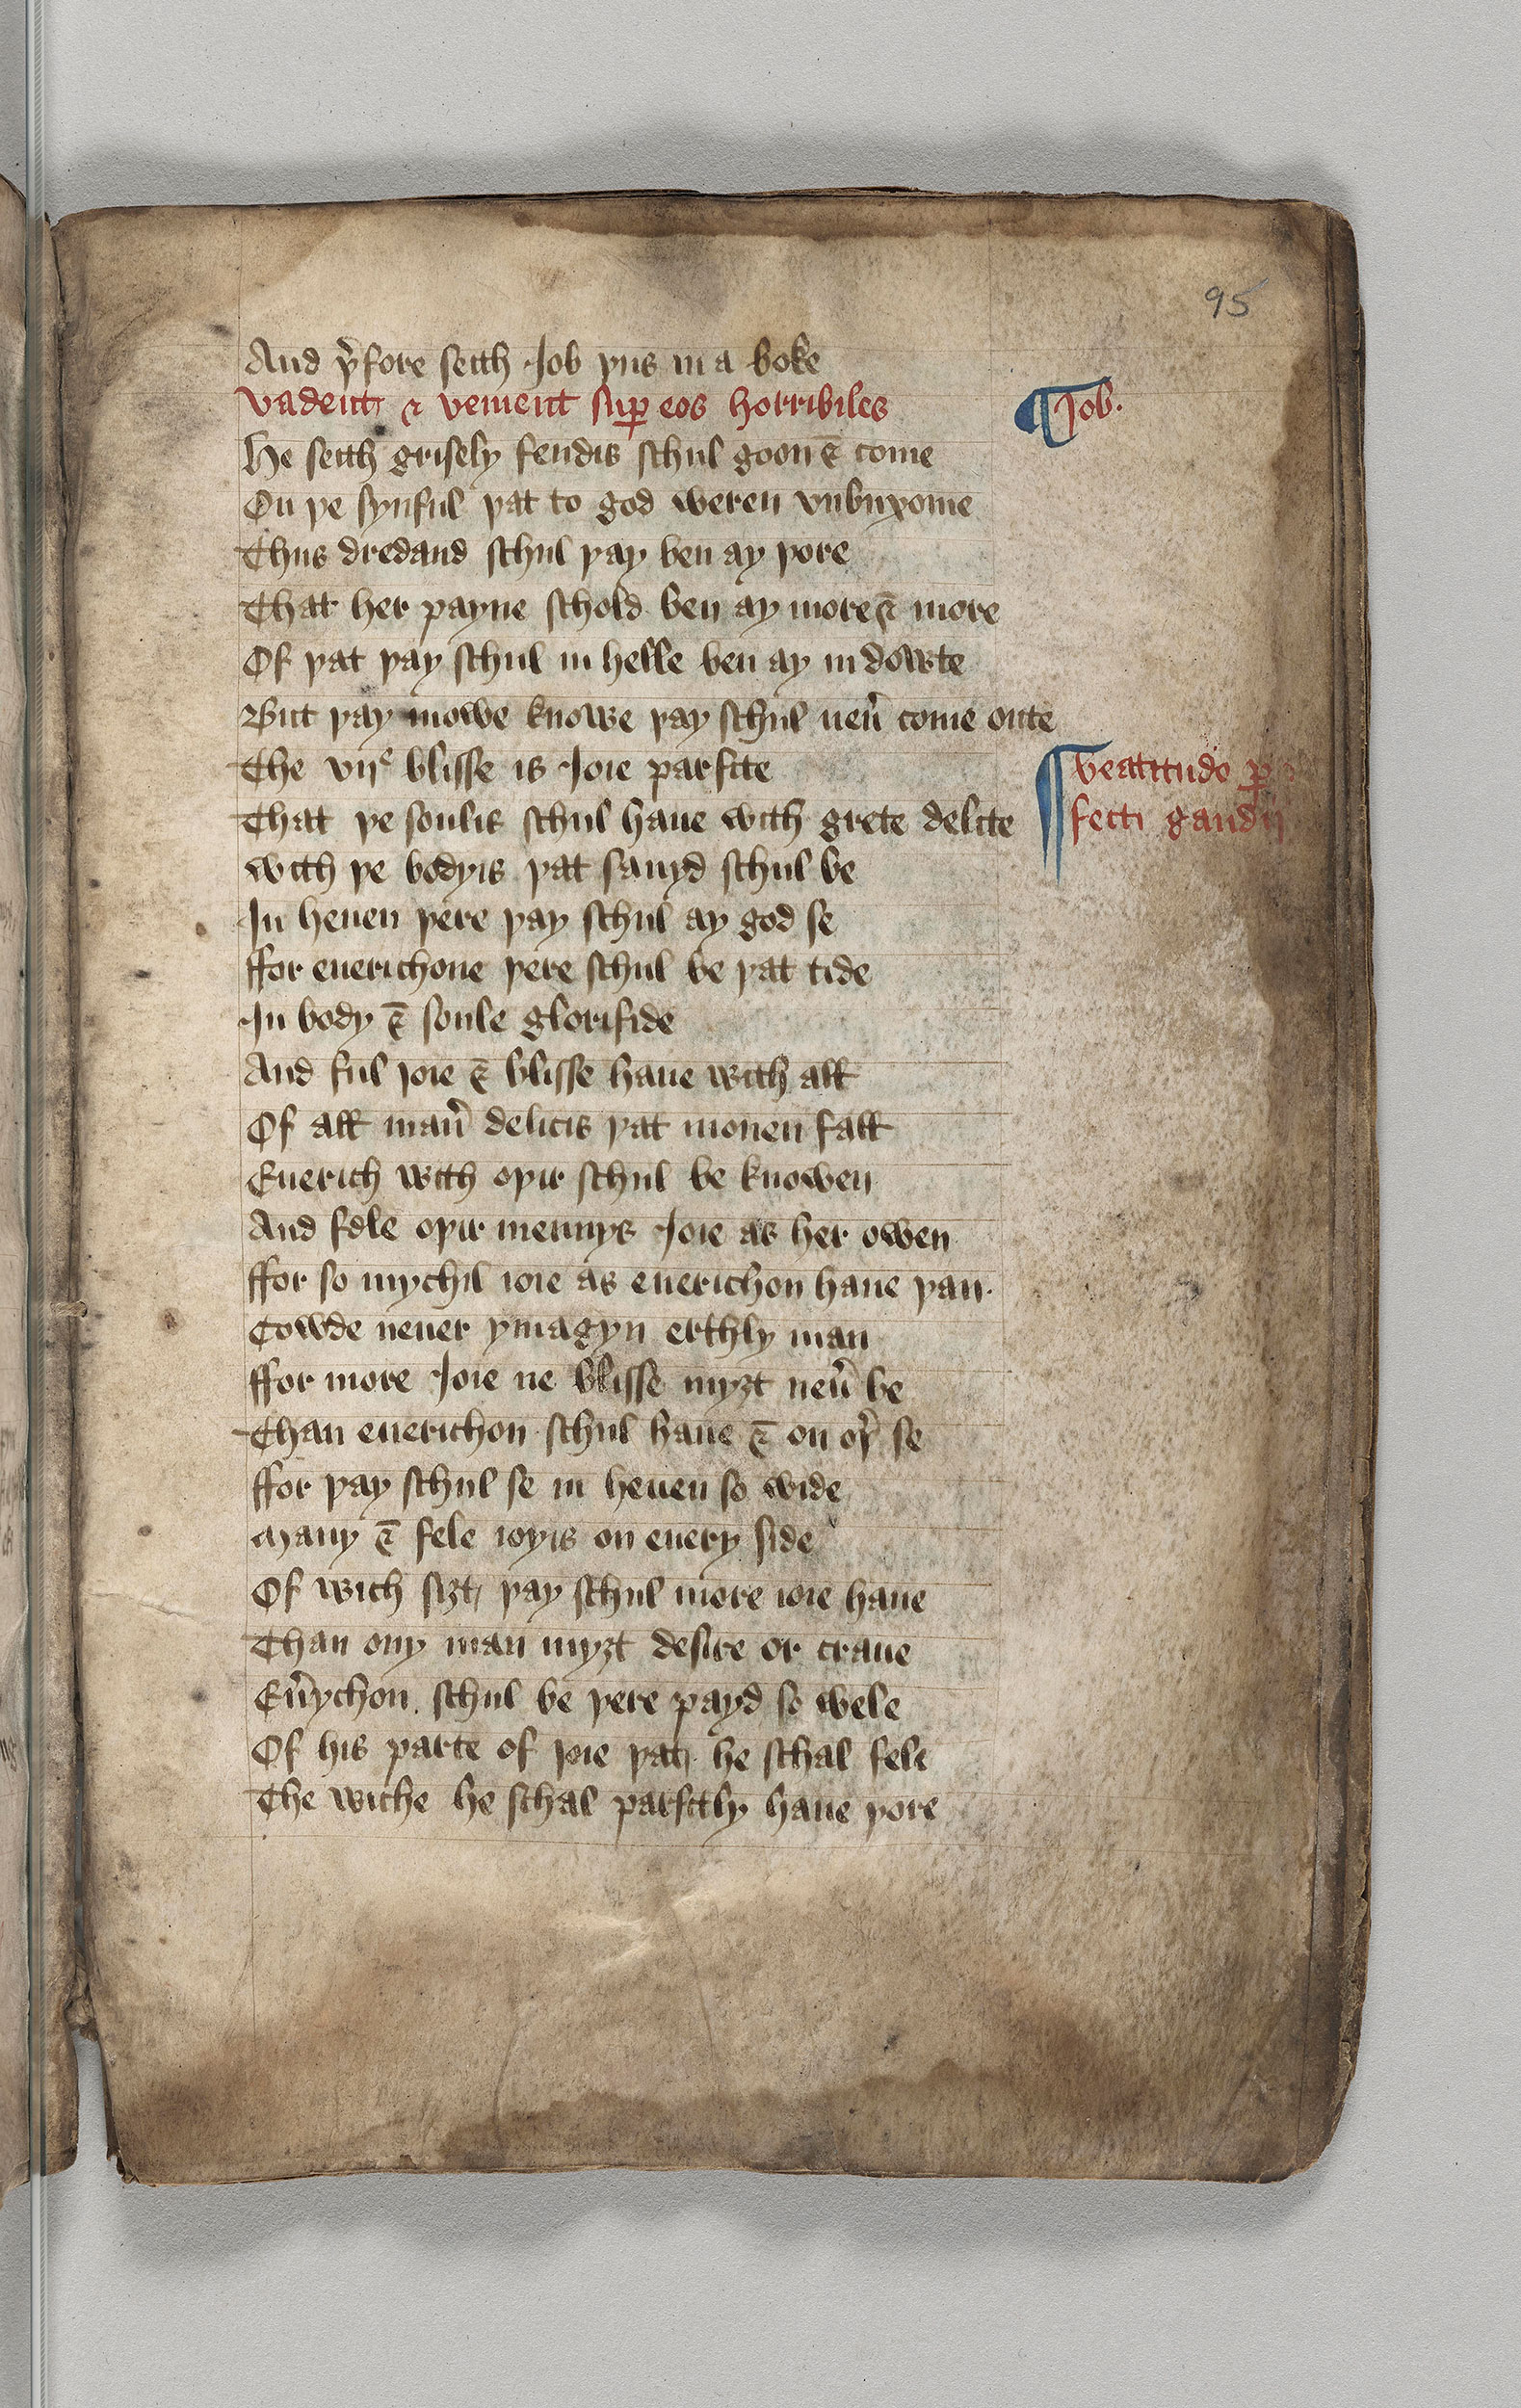 95
And þͬfore seith Job þus in a boke
Vadent & venient suꝑ eos horribiles
¶ Job.
He seith grisely fendis schul goon & come
On þe synful þat to god weren vnbuxome
Thus dredand schul þay ben ay þore
That her payne schold ben ay more & more
Of þat þay schul in helle ben ay in dowte
But þay mowe knowe þay schul neu̾ come oute
The vijᵉ blisse is Joie parfite
¶ beatitudo ꝑ
That þe soulis schul haue with grete delite
fecti gaudij
with þe bodyis þat sauyd schul be
In heuen þere þay schul ay god se
ffor euerichone þere schul be þat tide
In body & soule glorifide
And ful joie & blisse haue with all
Of all man̾ delicis þat mouen fall
Euerich with oþir schul be knowen
And fele oþir mennys Joie as her owen
ffor so mychil ioie as euerichon haue þan.
Cowde neuer ymagyn erthly man
ffor more Joie ne blisse myȝt neu̾ be
Than euerichon schul haue & on oþ̾ se
ffor þay schul se in heuen so wide
Many & fele ioyis on euery side
Of wich siȝt þay schul more ioie haue
Than ony man myȝt desire or craue
Eu̾ychon schul be þere payd so wele
Of his parte of joie þat he schal fele
The wiche he schal parfitly haue þore